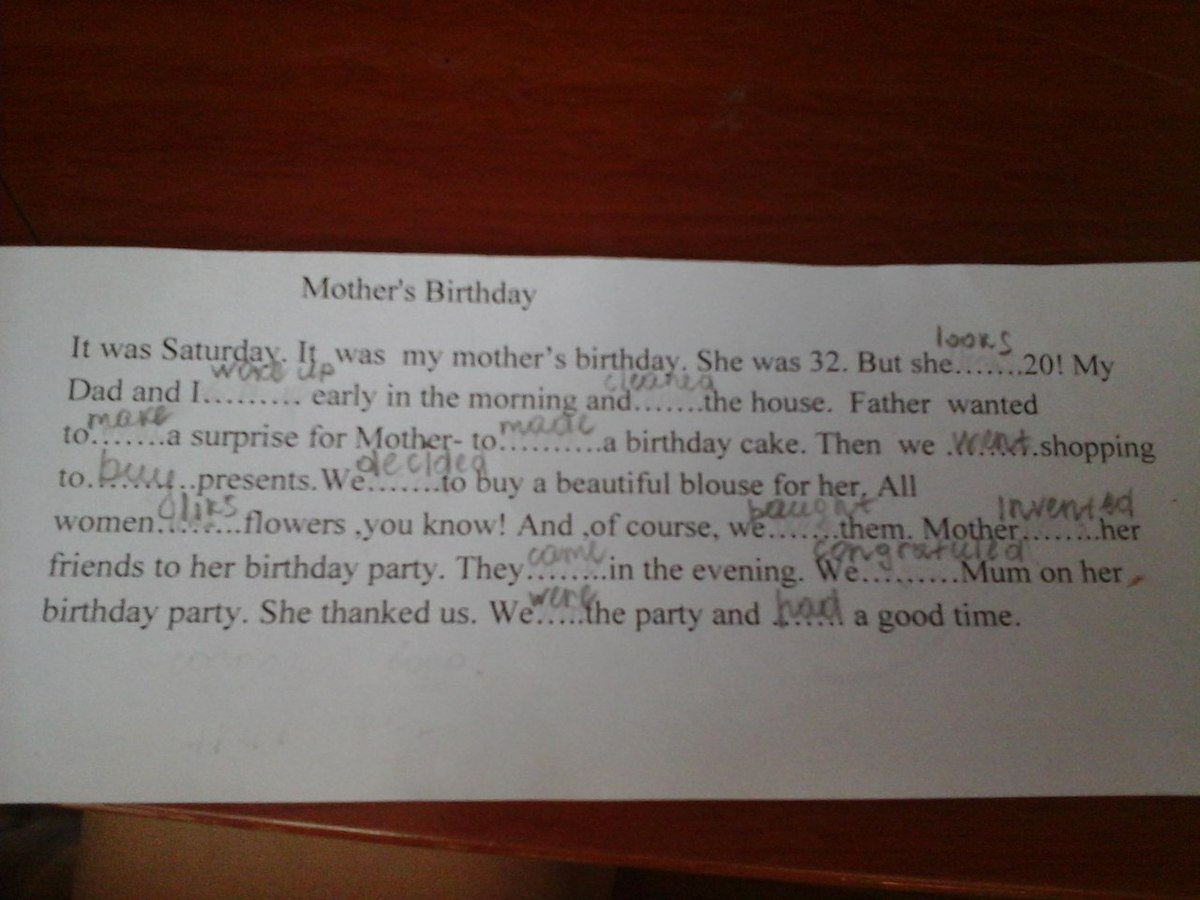 Mother's Birthday
looks
It was Saturday. It was my mother's birthday. She was 32. But she.......20! My
woke up cleaned
Dad and I......... early in the morning and.......the house. Father wanted
make made
to.......a surprise for Mother- to..........a birthday cake. Then we .went.shopping
decided
to.buy..presents. We.......to buy a beautiful blouse for her. All
liks bought invented
women........flowers ,you know! And ,of course, we.......them. Mother........her
came congratuled
friends to her birthday party. They........in the evening. We.........Mum on her
were
birthday party. She thanked us. We.....the party and had a good time.